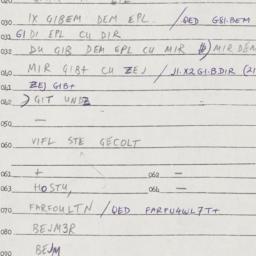 030 IX GIBEM DEM EPL. / QED GSI.BEM
031 GI DI EPL CU DIR
032 DU GIB DEM EPL CU MIR MIR DEM
040 MIR GIB+ CU ZEJ / JI.X2GI.BDIR (21
041 ZEJ GIB+
042 GIT UNDZ
050 —
VIFL STE GECOLT
060
061 + 062 —
063 HOSTU, 064 —
070 FARFOULTN / QED FARFU4WL7T+
080 BEJM3R
090 BEJM